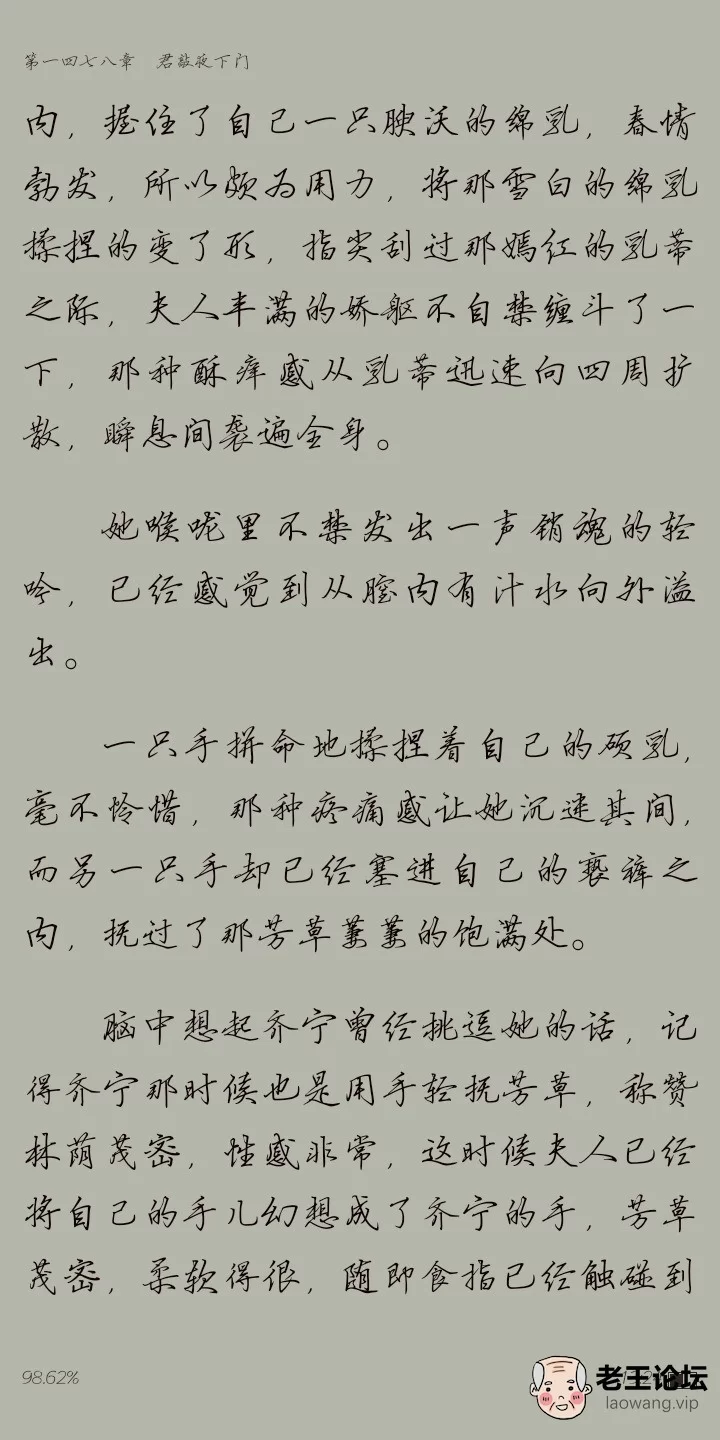 第一四七八章 君敲夜下门
内，握住了自己一只腴沃的绵乳，春情
勃发，所以颇为用力，将那雪白的绵乳
揉捏的变了形，指尖刮过那嫣红的乳蒂
之际，夫人丰满的娇躯不自禁缠斗了一
下，那种酥痒感从乳蒂迅速向四周扩
散，瞬息间袭遍全身。
她喉咙里不禁发出一声销魂的轻
吟，已经感觉到从膣内有汁水向外溢
出。
一只手拼命地揉捏着自己的硕乳，
毫不怜惜，那种疼痛感让她沉迷其间，
而另一只手却已经塞进自己的亵裤之
内，抚过了那芳草萋萋的饱满处。
脑中想起齐宁曾经挑逗她的话，记
得齐宁那时候也是用手轻抚芳草，称赞
林荫茂密，性感非常，这时候夫人已经
将自己的手儿幻想成了齐宁的手，芳草
茂密，柔软得很，随即食指已经触碰到
98.62%
老王论坛
laowang.vip